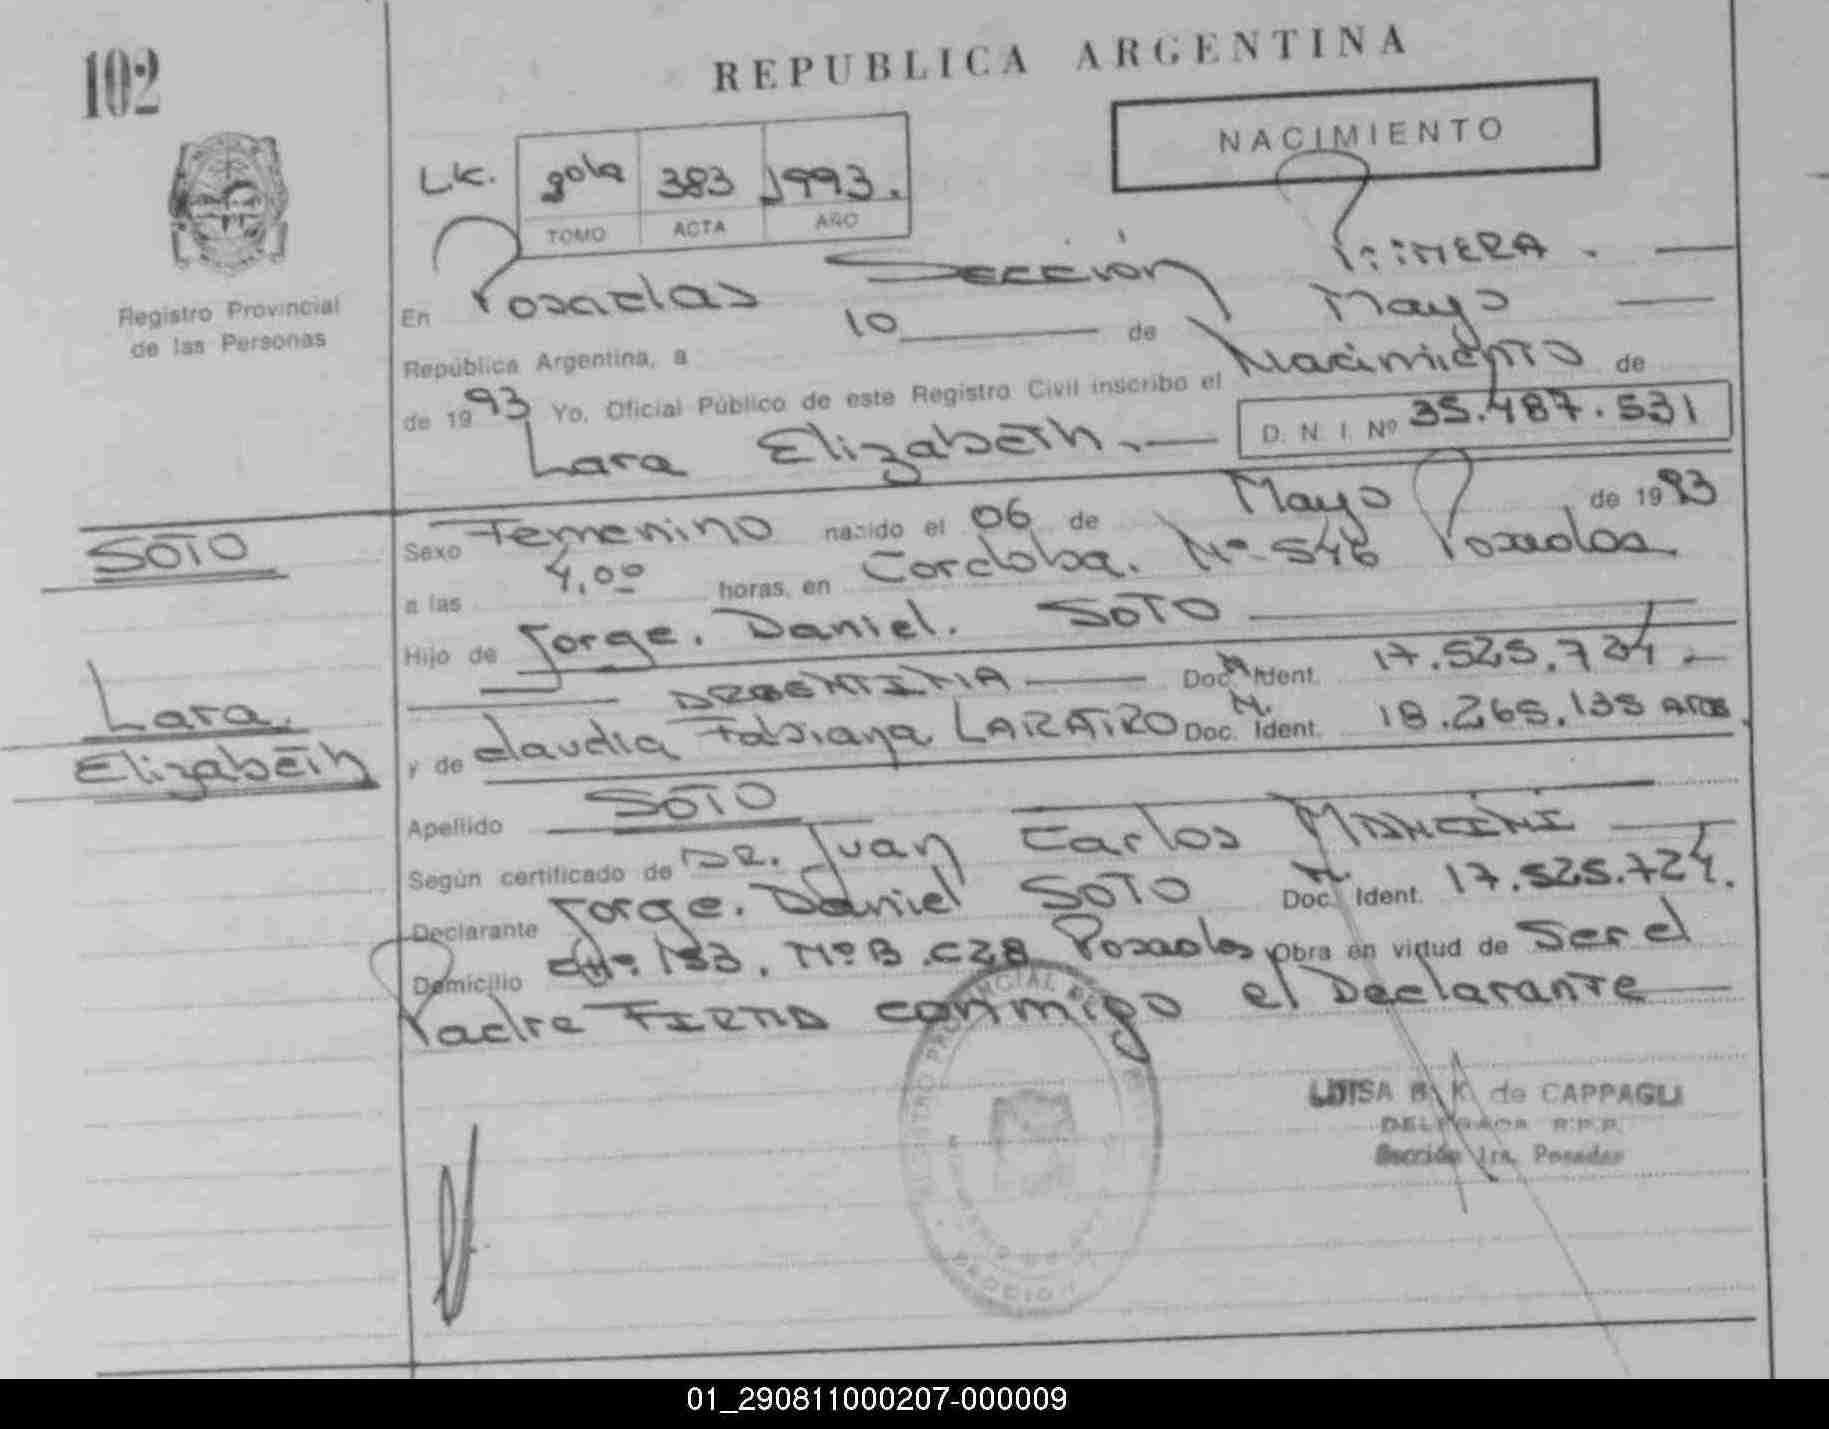 102
REPUBLICA ARGENTINA
NACIMIENTO
LK. 383 1993.
TOMO ACTA AÑO
Registro Provincial
de las Personas
En Posadas Sección Primera.
República Argentina, a 10 de Mayo
de 1993 Yo, Oficial Público de este Registro Civil inscribo el Nacimiento de
Lara Elizabeth. D. N. I. Nº 35.487.531
SOTO
Lara
Elizabeth
Sexo Femenino nacido el 06 de Mayo de 1993
a las 4,00 horas, en Cordoba. Nº 546 Posadas.
Hijo de Jorge. Daniel. SOTO
ARGENTINA Doc. M. Ident. 17.525.724
y de Claudia Fabiana Doc. M. Ident. 18.265.135
Apellido SOTO
Según certificado de DR. Juan Carlos MANCINI
Declarante Jorge. Daniel SOTO Doc. M. Ident. 17.525.724.
Domicilio 133. Posadas Obra en virtud de Ser el
Padre FIRMA conmigo el Declarante
LUISA B. K. de CAPPAGLI
DELEGADA R.P.P.
Sección 1ra. Posadas
01_290811000207-000009